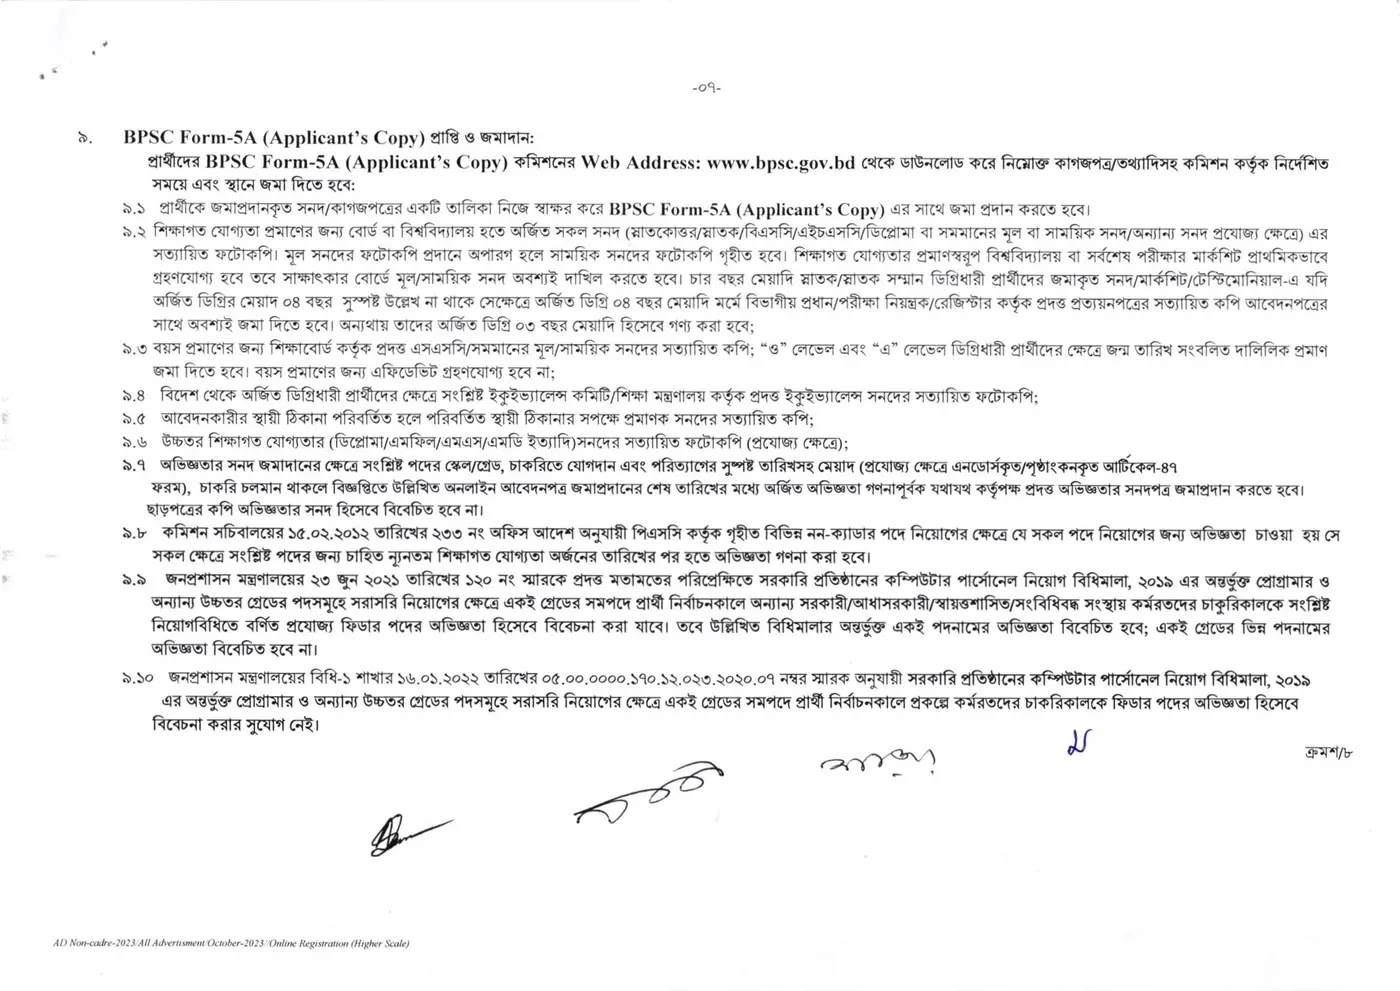 -০৭-
৯. BPSC Form-5A (Applicant's Copy) প্রাপ্তি ও জমাদান:
প্রার্থীদের BPSC Form-5A (Applicant's Copy) কমিশনের Web Address: www.bpsc.gov.bd থেকে ডাউনলোড করে নিম্নোক্ত কাগজপত্র/তথ্যাদিসহ কমিশন কর্তৃক নির্দেশিত
সময়ে এবং স্থানে জমা দিতে হবে:
৯.১ প্রার্থীকে জমাপ্রদানকৃত সনদ/কাগজপত্রের একটি তালিকা নিজে স্বাক্ষর করে BPSC Form-5A (Applicant's Copy) এর সাথে জমা প্রদান করতে হবে।
৯.২ শিক্ষাগত যোগ্যতা প্রমাণের জন্য বোর্ড বা বিশ্ববিদ্যালয় হতে অর্জিত সকল সনদ (স্নাতকোত্তর/স্নাতক/বিএসসি/এইচএসসি/ডিপ্লোমা বা সমমানের মূল বা সাময়িক সনদ/অন্যান্য সনদ প্রযোজ্য ক্ষেত্রে) এর
সত্যায়িত ফটোকপি। মূল সনদের ফটোকপি প্রদানে অপারগ হলে সাময়িক সনদের ফটোকপি গৃহীত হবে। শিক্ষাগত যোগ্যতার প্রমাণস্বরূপ বিশ্ববিদ্যালয় বা সর্বশেষ পরীক্ষার মার্কশিট প্রাথমিকভাবে
গ্রহণযোগ্য হবে তবে সাক্ষাৎকার বোর্ডে মূল/সাময়িক সনদ অবশ্যই দাখিল করতে হবে। চার বছর মেয়াদি স্নাতক/স্নাতক সম্মান ডিগ্রিধারী প্রার্থীদের জমাকৃত সনদ/মার্কশিট/টেস্টিমোনিয়াল-এ যদি
অর্জিত ডিগ্রির মেয়াদ ০৪ বছর সুস্পষ্ট উল্লেখ না থাকে সেক্ষেত্রে অর্জিত ডিগ্রি ০৪ বছর মেয়াদি মর্মে বিভাগীয় প্রধান/পরীক্ষা নিয়ন্ত্রক/রেজিস্টার কর্তৃক প্রদত্ত প্রত্যয়নপত্রের সত্যায়িত কপি আবেদনপত্রের
সাথে অবশ্যই জমা দিতে হবে। অন্যথায় তাদের অর্জিত ডিগ্রি ০৩ বছর মেয়াদি হিসেবে গণ্য করা হবে;
৯.৩ বয়স প্রমাণের জন্য শিক্ষাবোর্ড কর্তৃক প্রদত্ত এসএসসি/সমমানের মূল/সাময়িক সনদের সত্যায়িত কপি; “ও” লেভেল এবং “এ” লেভেল ডিগ্রিধারী প্রার্থীদের ক্ষেত্রে জন্ম তারিখ সংবলিত দালিলিক প্রমাণ
জমা দিতে হবে। বয়স প্রমাণের জন্য এফিডেভিট গ্রহণযোগ্য হবে না;
৯.৪ বিদেশ থেকে অর্জিত ডিগ্রিধারী প্রার্থীদের ক্ষেত্রে সংশ্লিষ্ট ইকুইভ্যালেন্স কমিটি/শিক্ষা মন্ত্রণালয় কর্তৃক প্রদত্ত ইকুইভ্যালেন্স সনদের সত্যায়িত ফটোকপি;
৯.৫ আবেদনকারীর স্থায়ী ঠিকানা পরিবর্তিত হলে পরিবর্তিত স্থায়ী ঠিকানার সপক্ষে প্রমাণক সনদের সত্যায়িত কপি;
৯.৬ উচ্চতর শিক্ষাগত যোগ্যতার (ডিপ্লোমা/এমফিল/এমএস/এমডি ইত্যাদি)সনদের সত্যায়িত ফটোকপি (প্রযোজ্য ক্ষেত্রে);
৯.৭ অভিজ্ঞতার সনদ জমাদানের ক্ষেত্রে সংশ্লিষ্ট পদের স্কেল/গ্রেড, চাকরিতে যোগদান এবং পরিত্যাগের সুস্পষ্ট তারিখসহ মেয়াদ (প্রযোজ্য ক্ষেত্রে এনডোর্সকৃত/পৃষ্ঠাংকনকৃত আর্টিকেল-৪৭
ফরম), চাকরি চলমান থাকলে বিজ্ঞপ্তিতে উল্লিখিত অনলাইন আবেদনপত্র জমাপ্রদানের শেষ তারিখের মধ্যে অর্জিত অভিজ্ঞতা গণনাপূর্বক যথাযথ কর্তৃপক্ষ প্রদত্ত অভিজ্ঞতার সনদপত্র জমাপ্রদান করতে হবে।
ছাড়পত্রের কপি অভিজ্ঞতার সনদ হিসেবে বিবেচিত হবে না।
৯.৮ কমিশন সচিবালয়ের ১৫.০২.২০১২ তারিখের ২৩৩ নং অফিস আদেশ অনুযায়ী পিএসসি কর্তৃক গৃহীত বিভিন্ন নন-ক্যাডার পদে নিয়োগের ক্ষেত্রে যে সকল পদে নিয়োগের জন্য অভিজ্ঞতা চাওয়া হয় সে
সকল ক্ষেত্রে সংশ্লিষ্ট পদের জন্য চাহিত ন্যূনতম শিক্ষাগত যোগ্যতা অর্জনের তারিখের পর হতে অভিজ্ঞতা গণনা করা হবে।
৯.৯ জনপ্রশাসন মন্ত্রণালয়ের ২৩ জুন ২০২১ তারিখের ১২০ নং স্মারকে প্রদত্ত মতামতের পরিপ্রেক্ষিতে সরকারি প্রতিষ্ঠানের কম্পিউটার পার্সোনেল নিয়োগ বিধিমালা, ২০১৯ এর অন্তর্ভুক্ত প্রোগ্রামার ও
অন্যান্য উচ্চতর গ্রেডের পদসমূহে সরাসরি নিয়োগের ক্ষেত্রে একই গ্রেডের সমপদে প্রার্থী নির্বাচনকালে অন্যান্য সরকারী/আধাসরকারী/স্বায়ত্তশাসিত/সংবিধিবদ্ধ সংস্থায় কর্মরতদের চাকুরিকালকে সংশ্লিষ্ট
নিয়োগবিধিতে বর্ণিত প্রযোজ্য ফিডার পদের অভিজ্ঞতা হিসেবে বিবেচনা করা যাবে। তবে উল্লিখিত বিধিমালার অন্তর্ভুক্ত একই পদনামের অভিজ্ঞতা বিবেচিত হবে; একই গ্রেডের ভিন্ন পদনামের
অভিজ্ঞতা বিবেচিত হবে না।
৯.১০ জনপ্রশাসন মন্ত্রণালয়ের বিধি-১ শাখার ১৬.০১.২০২২ তারিখের ০৫.০০.০০০০.১৭০.১২.০২৩.২০২০.০৭ নম্বর স্মারক অনুযায়ী সরকারি প্রতিষ্ঠানের কম্পিউটার পার্সোনেল নিয়োগ বিধিমালা, ২০১৯
এর অন্তর্ভুক্ত প্রোগ্রামার ও অন্যান্য উচ্চতর গ্রেডের পদসমূহে সরাসরি নিয়োগের ক্ষেত্রে একই গ্রেডের সমপদে প্রার্থী নির্বাচনকালে প্রকল্পে কর্মরতদের চাকরিকালকে ফিডার পদের অভিজ্ঞতা হিসেবে
বিবেচনা করার সুযোগ নেই।
ক্রমশ/৮
AD Non-cadre-2023/All Advertisment/October-2023//Online Registration (Higher Scale)